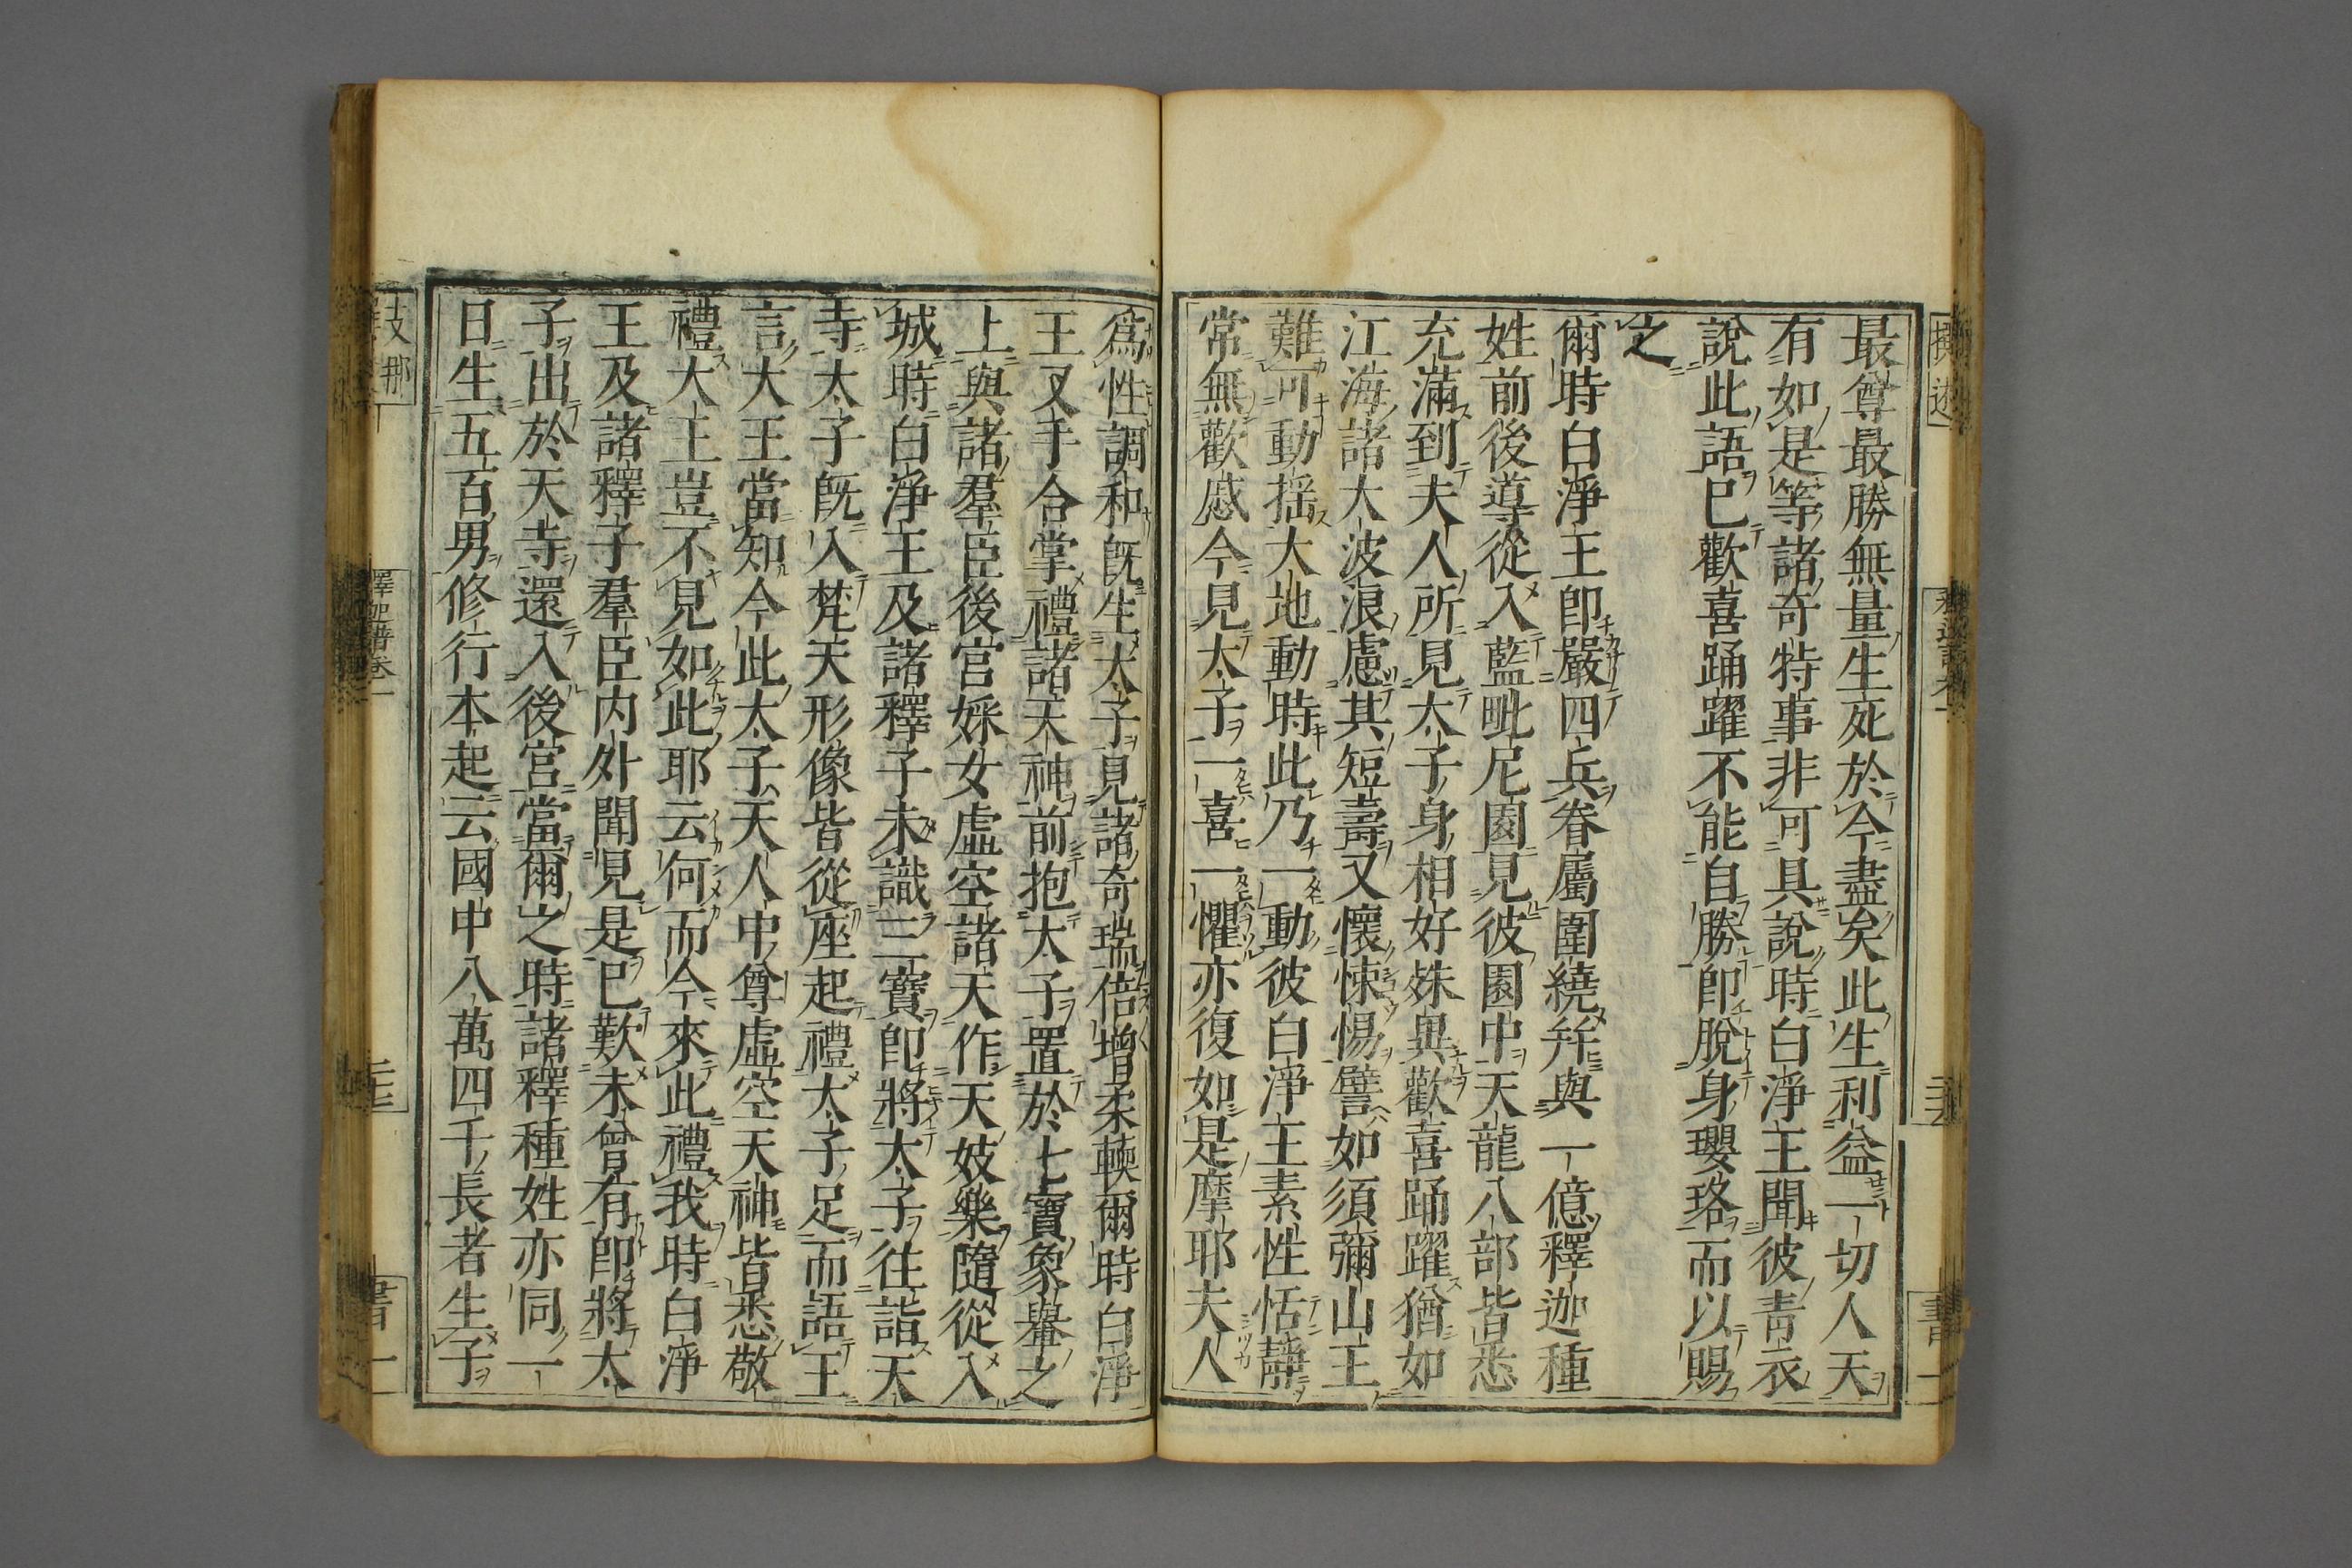 最尊最勝無量生死於今盡矣此生利益一切人天
有如是等諸奇特事非可具說時白淨王聞彼青衣
說此語巳歡喜踊躍不能自勝卽脫身瓔珞而以賜
之
爾時白淨王卽嚴四兵眷屬圍繞幷與一億釋迦種
姓前後導從入藍毗尼園見彼園中天龍八部皆悉
充滿到夫人所見太子身相好殊異歡喜踊躍猶如
江海諸大波浪慮其短壽又懷悚惕譬如須彌山王
難可動搖大地動時此乃一動彼白淨王素性恬靜
常無歡慼今見太子一喜一懼亦復如是摩耶夫人
爲性調和旣生太子見諸奇瑞倍增柔輭爾時白淨
王叉手合掌禮諸天神前抱太子置於七寶象轝之
上與諸羣臣後宫婇女虛空諸天作天妓樂隨從入
城時白淨王及諸釋子未識三寶卽將太子往詣天
寺太子旣入梵天形像皆從座起禮太子足而語王
言大王當知今此太子天人中尊虛空天神皆悉敬
禮大王豈不見如此耶云何而今來此禮我時白淨
王及諸釋子羣臣内外聞見是巳歎未曾有卽將太
子出於天寺還入後宫當爾之時諸釋種姓亦同一
日生五百男修行本起云國中八萬四千長者生子
支那
釋迦譜卷一
書一